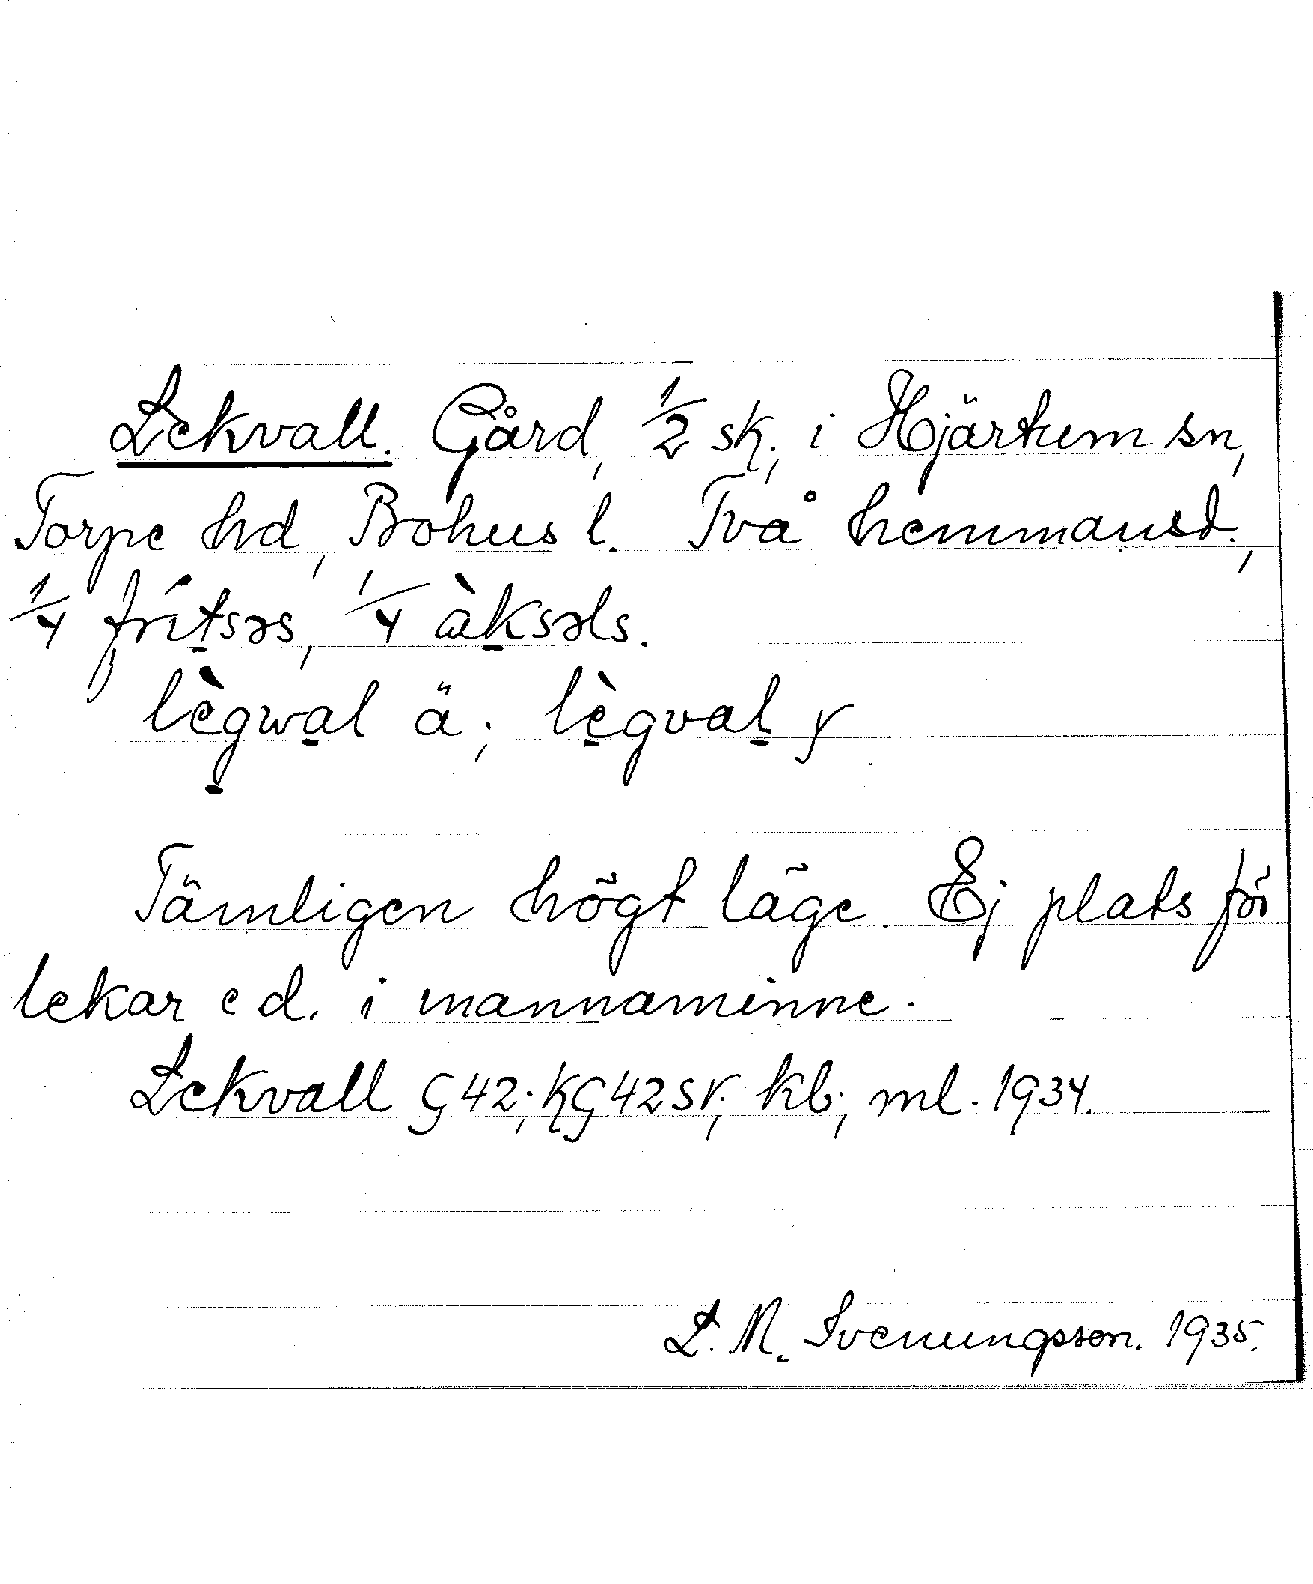 Lekvall. Gård, 1/2 sk., i Hjärtum sn,
Torpe hd, Bohus l. Två hemmansd.,
1/4 frítsəs, 1/4 àksəls.
lègwal ä; lègval y
Tämligen högt läge. Ej plats för
lekar e d. i mannaminne.
Lekvall G 42; KG 42 sv; kb; ml. 1934.
L. M. Svenungsson. 1935.